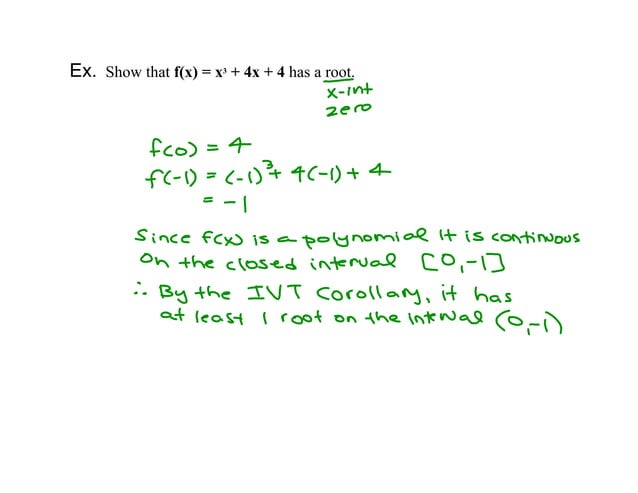 Ex. Show that f(x) = x³ + 4x + 4 has a root.
x-int
zero
f(0) = 4
f(-1) = (-1)³ + 4(-1) + 4
= -1
Since f(x) is a polynomial it is continuous
on the closed interval [0,-1]
∴ By the IVT Corollary, it has
at least 1 root on the interval (0,-1)